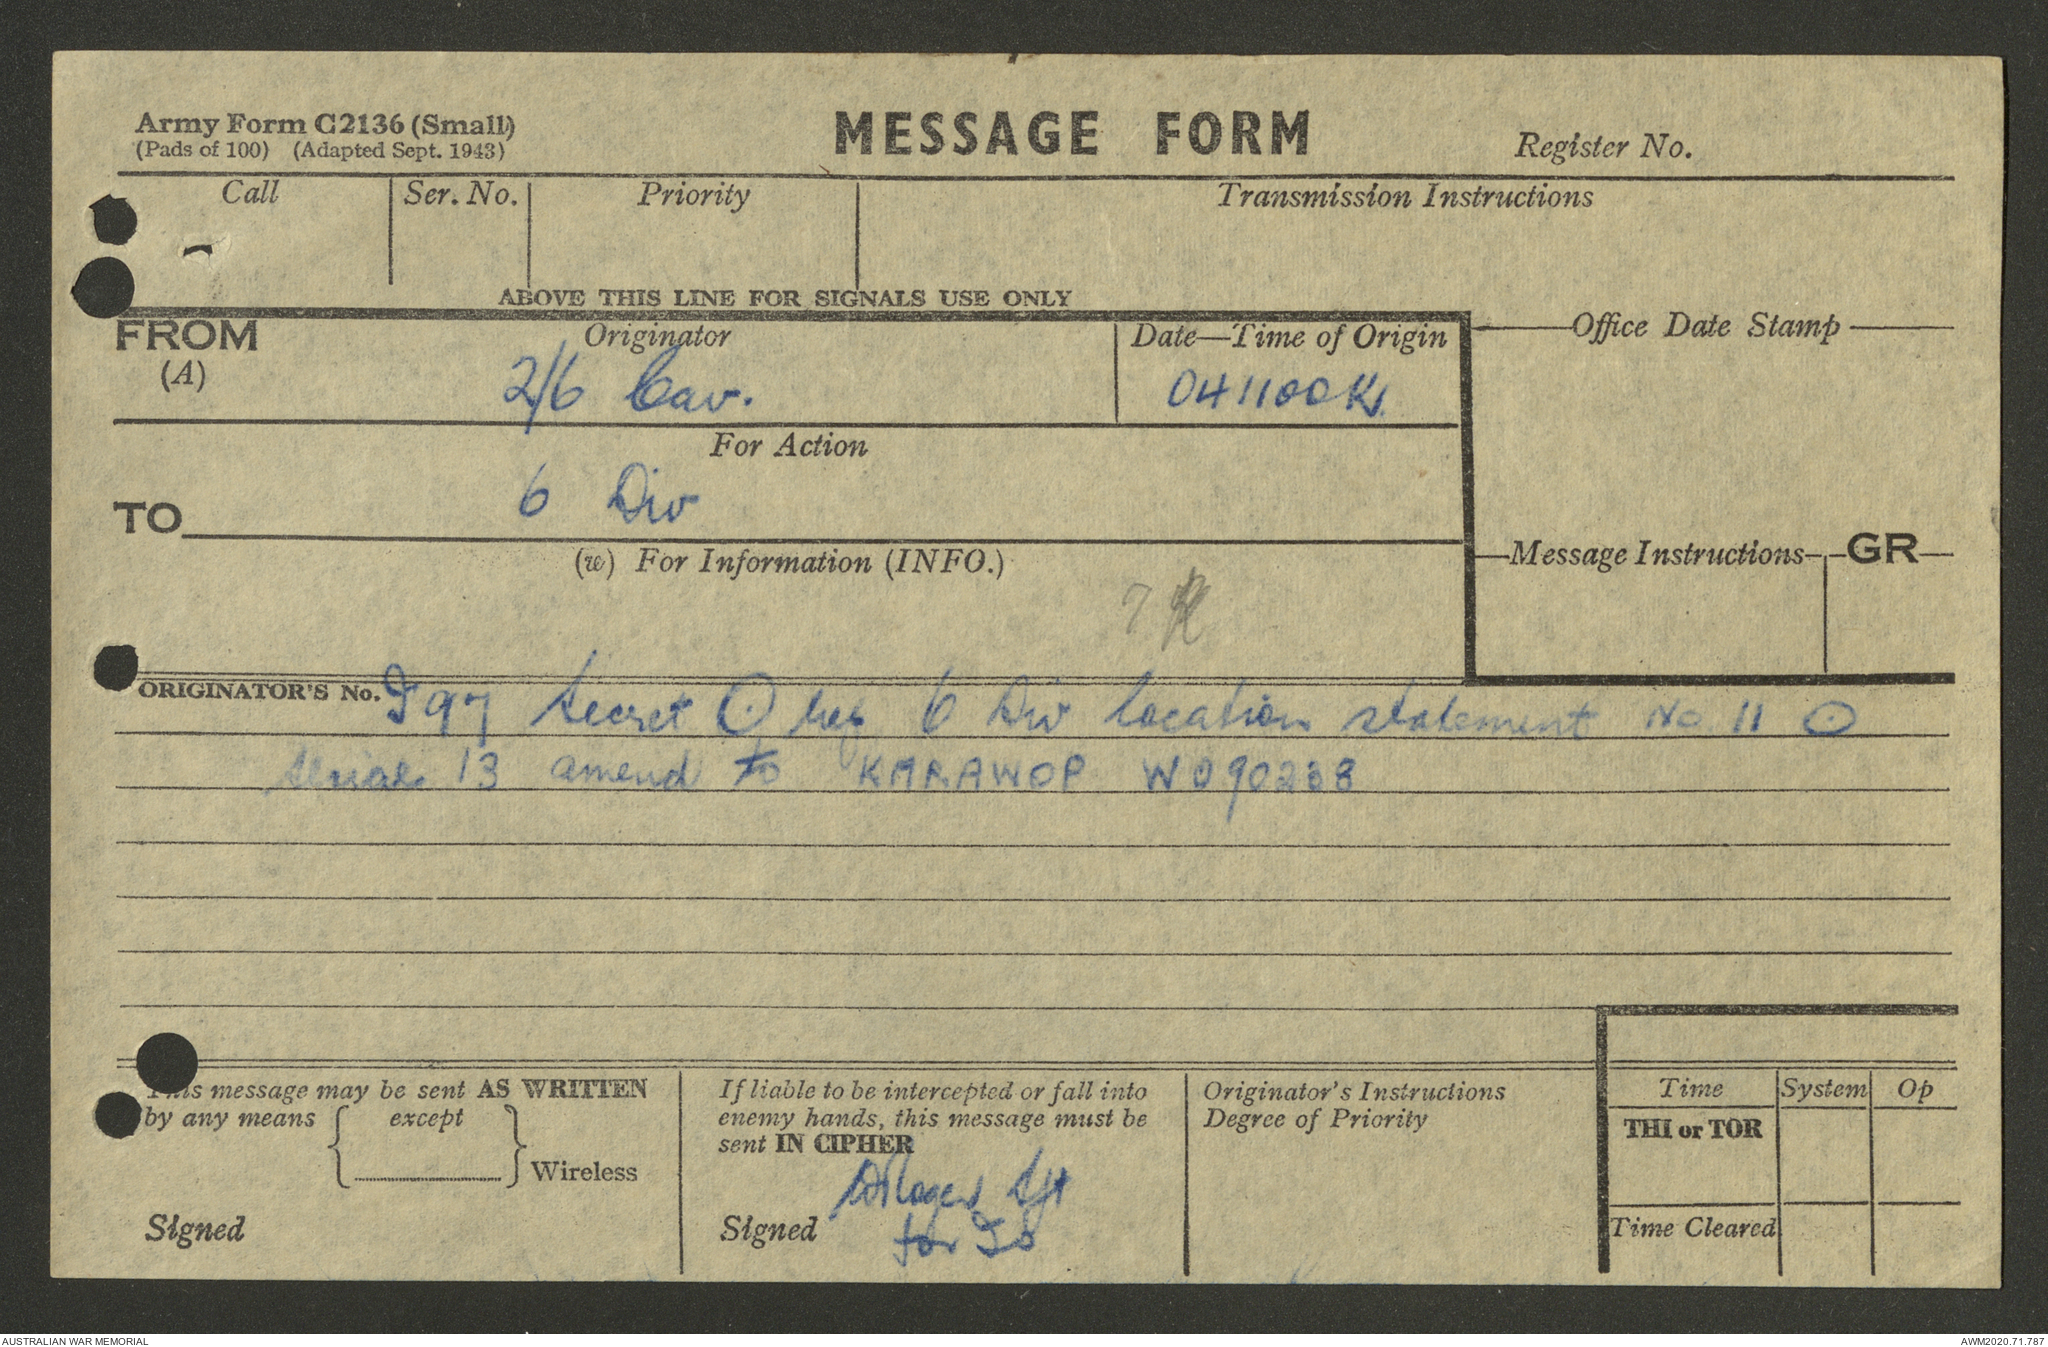 Army Form C2136 (Small)
(Pads of 100) (Adapted Sept. 1943)
MESSAGE FORM
Register No.
Call Ser. No. Priority Transmission Instructions
ABOVE THIS LINE FOR SIGNALS USE ONLY
FROM Originator Date—Time of Origin Office Date Stamp
(A) 2/6 Cav. 041100K
For Action
6 Div
TO
(w) For Information (INFO.) Message Instructions GR
7
ORIGINATOR'S No. I 97 Secret ⊙ ref 6 Div location statement No. 11 ⊙
serial 13 amend to KARAWOP W090238
This message may be sent AS WRITTEN
by any means { except } Wireless
Signed
If liable to be intercepted or fall into
enemy hands, this message must be
sent IN CIPHER
Sgt
Signed for IO
Originator's Instructions
Degree of Priority
Time System Op
THI or TOR
Time Cleared
AUSTRALIAN WAR MEMORIAL AWM2020.71.787